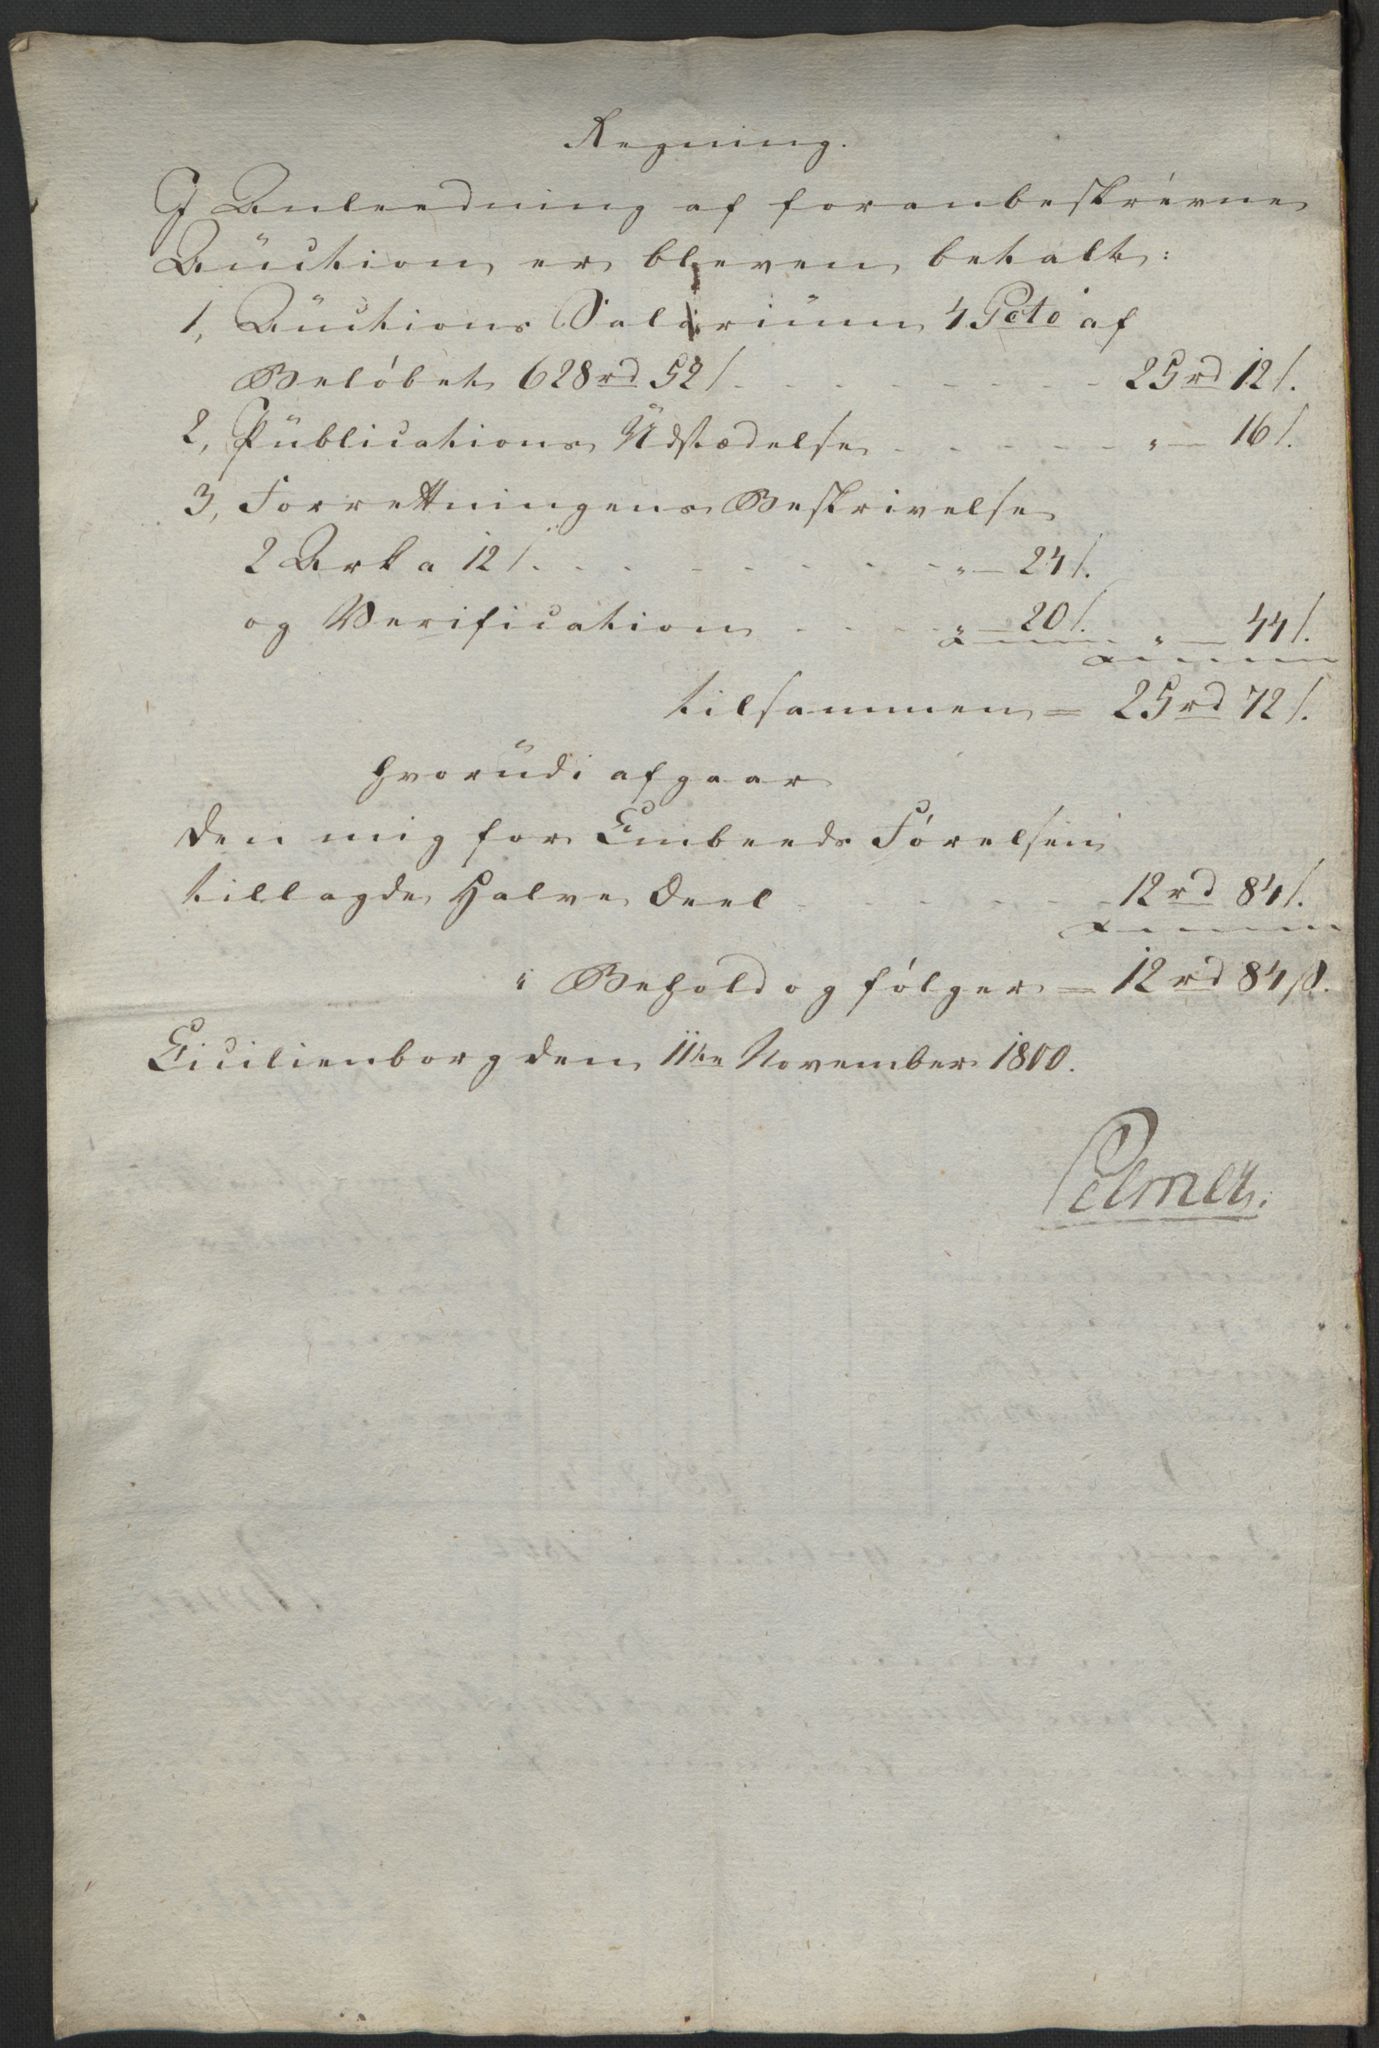 Regning.
I Anleedning af foranbeskrevne
Auction er bleven betalt:
1, Auctions Salarium 4 Pcto af
Beløbet 628 rd 52 s. 25 rd 12 s.
2, Publications Udstædelse " — 16 s.
3, Forrettningens Beskrivelse
2 Ark a 12 s. " — 24 s.
og Verification " — 20 s. " — 44 s.
tilsammen = 25 rd 72 s.
hvorudi afgaar
den mig for Embeeds Førelsen
tillagde Halve Deel 12 rd 84 s.
i Behold og følger = 12 rd 84 s.
Cicilienborg den 11te November 1800.